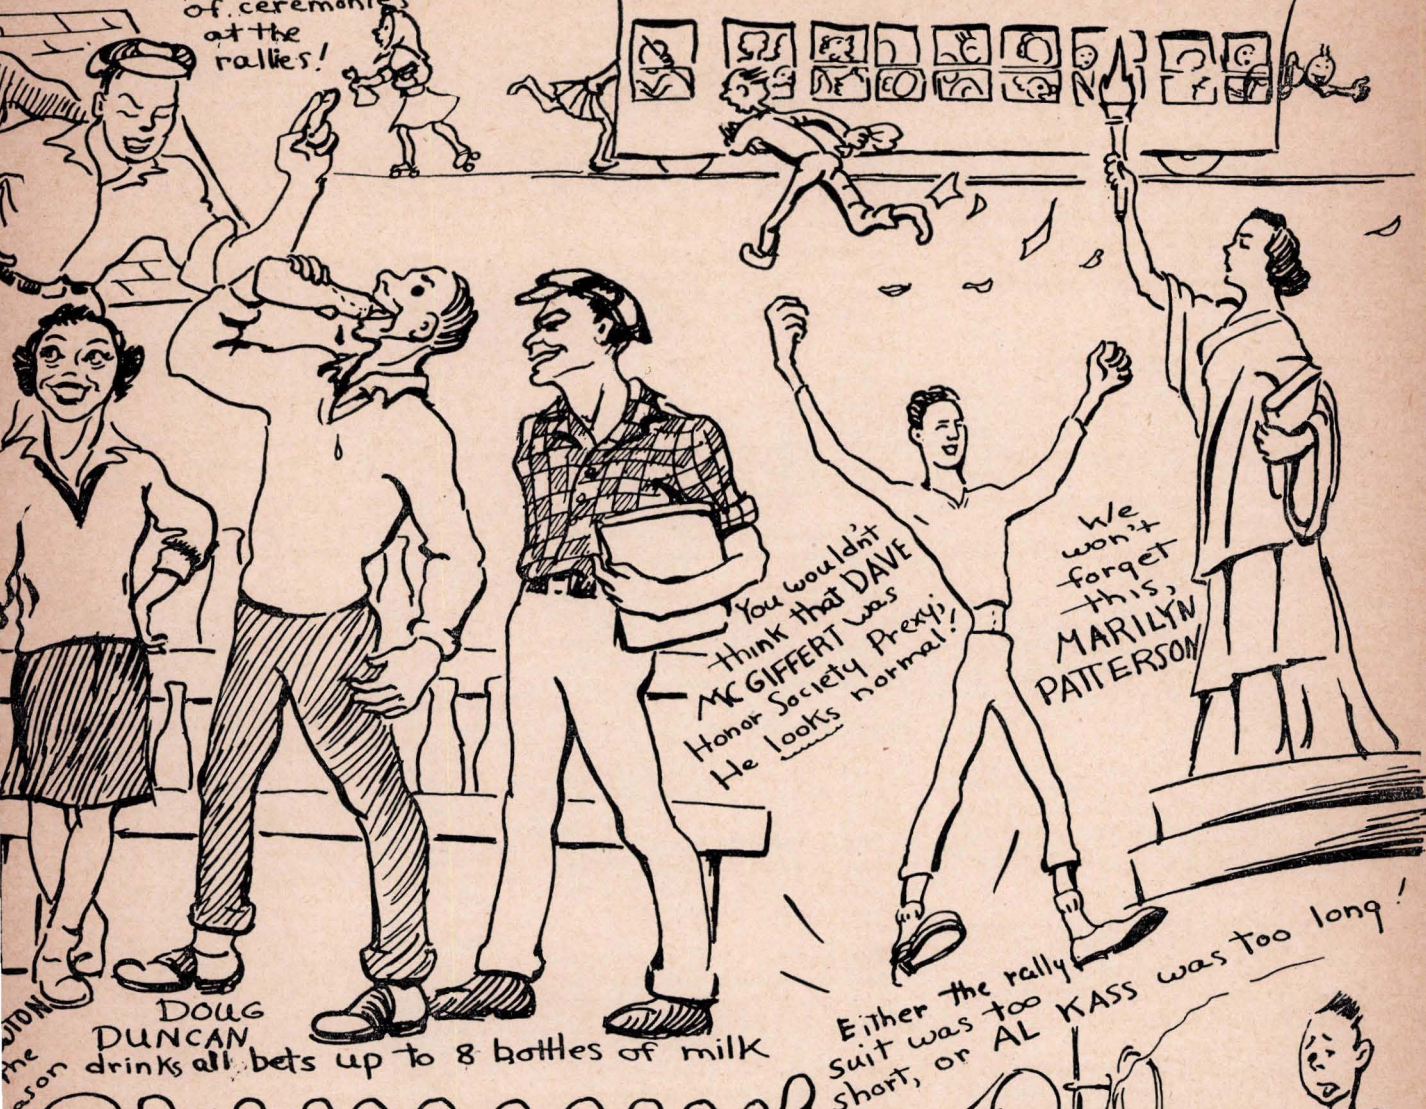 of ceremonies
at the
rallies!
You wouldn't
think that DAVE
MC GIFFERT was
Honor Society Prexy;
He looks normal!
We
won't
forget
this,
MARILYN
PATTERSON
DOUG
DUNCAN
drinks all bets up to 8 bottles of milk
Either the rally
suit was too
short, or AL KASS was too long!